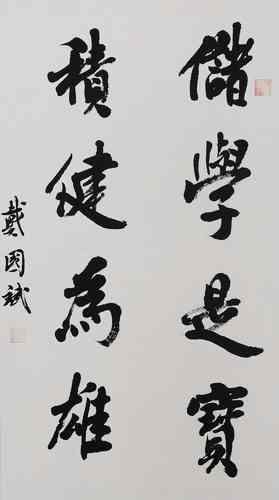 儲學是寶
積健為雄
戴國斌